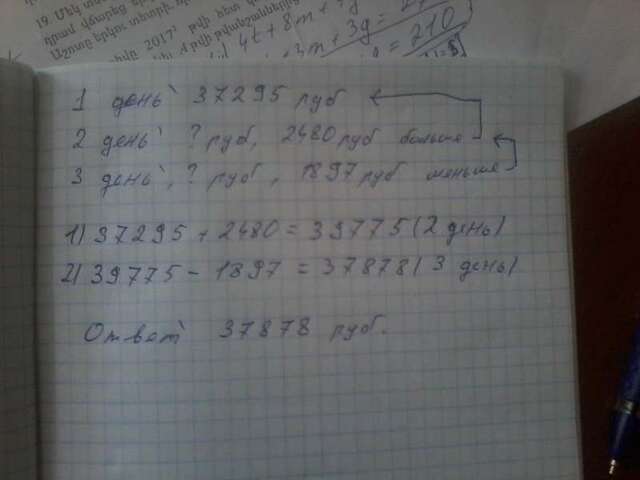 19. Մեկ
2017 թվի
4t + 8m +
3m + 3g =
= 710
1 день՝ 37295 руб
2 день՝ ? руб, 2480 руб больше
3 день՝, ? руб, 1897 руб меньше
1) 37295 + 2480 = 39775 (2 день)
2) 39775 - 1897 = 37878 (3 день)
Ответ՝ 37878 руб.